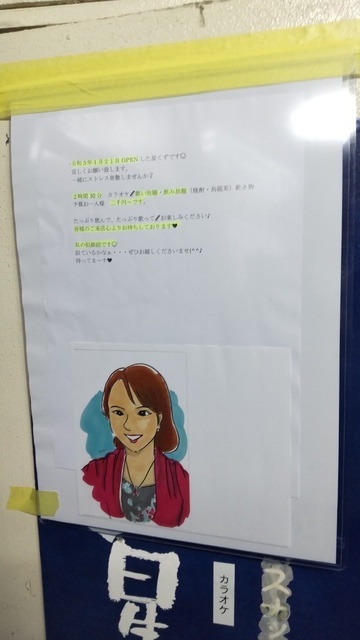 令和5年4月21日 OPEN した星くずです☺
宜しくお願い致します。
一緒にストレス発散しませんか♪
2時間30分 カラオケ🎤歌い放題・飲み放題（焼酎・鳥龍茶）乾き物
予算お一人様 二千円〜です。
たっぷり飲んで、たっぷり歌って🎤お楽しみください♪
皆様のご来店心よりお待ちしております♥
私の似顔絵です☺
似ているかなぁ・・・ぜひお越しくださいませ(^^♪
待ってまーす♥
カラオケ
スナッ